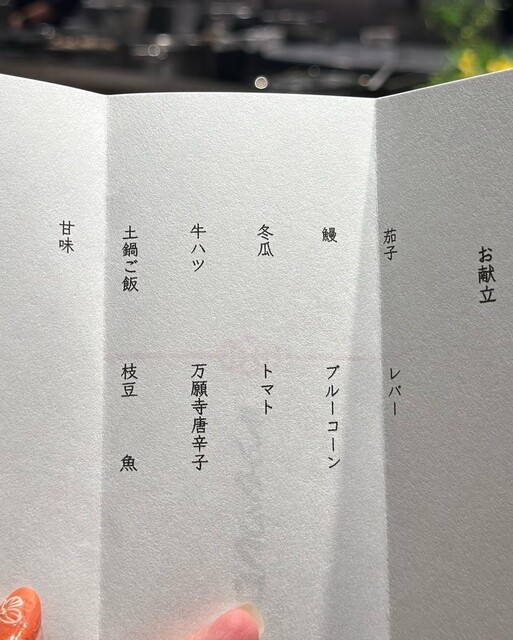 お献立
茄子 レバー
鰻 ブルーコーン
冬瓜 トマト
牛ハツ 万願寺唐辛子
土鍋ご飯 枝豆 魚
甘味